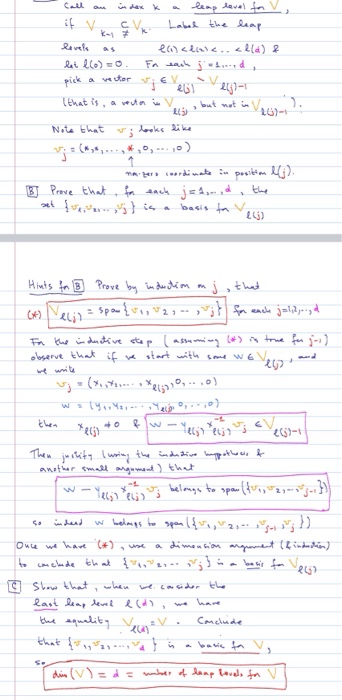 Call an index k a leap level for V,
if V_{k-1} ⊊ V_k. Label the leap
levels as l(1) < l(2) < .. < l(d) &
let l(0) = 0. For each j = 1,..., d,
pick a vector v_j ∈ V_{l(j)} \ V_{l(j)-1}
(that is, a vector in V_{l(j)}, but not in V_{l(j)-1}).
Note that v_j looks like
v_j = (*,*,...,*,0,...,0)
↑
non-zero coordinate in position l(j).
B Prove that, for each j = 1,..,d, the
set {v_1, v_2, .., v_j} is a basis for V_{l(j)}
Hints for B Prove by induction on j, that
(*) V_{l(j)} = span{v_1, v_2, .., v_j} for each j=1,2,..,d
For the inductive step (assuming (*) is true for j-1)
observe that if we start with some w ∈ V_{l(j)}, and
we write
v_j = (x_1, x_2, ... x_{l(j)}, 0, .. ,0)
w = (y_1, y_2, ... , y_{l(j)}, 0, .. ,0)
then x_{l(j)} ≠ 0 & w - y_{l(j)} x_{l(j)}^{-1} v_j ∈ V_{l(j)-1}
Then justify (using the inductive hypothesis &
another small argument) that
w - y_{l(j)} x_{l(j)}^{-1} v_j belongs to span({v_1, v_2, .., v_{j-1}})
so indeed w belongs to span({v_1, v_2, .. v_{j-1}, v_j})
Once we have (*), use a dimension argument (& induction)
to conclude that {v_1, v_2, .. v_j} is a basis for V_{l(j)}
C Show that, when we consider the
last leap level l(d), we have
the equality V_{l(d)} = V. Conclude
that {v_1, v_2, .., v_d} is a basis for V,
so
dim(V) = d = number of leap levels for V